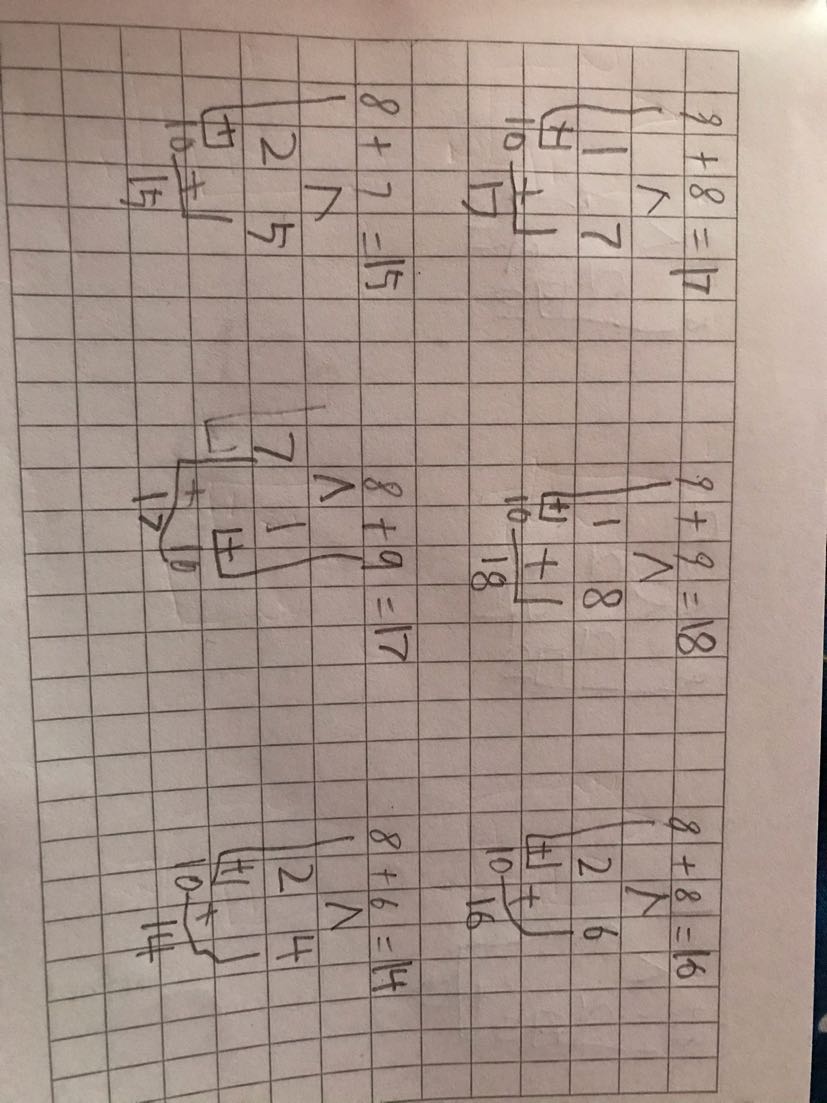 9 + 8 = 17 9 + 9 = 18 8 + 8 = 16
∧ ∧ ∧
1 7 1 8 2 6
+ + +
10 + 10 + 10 +
17 18 16
8 + 7 = 15 8 + 9 = 17 8 + 6 = 14
∧ ∧ ∧
2 5 7 1 2 4
+ + +
10 + + 10 10 +
15 17 14